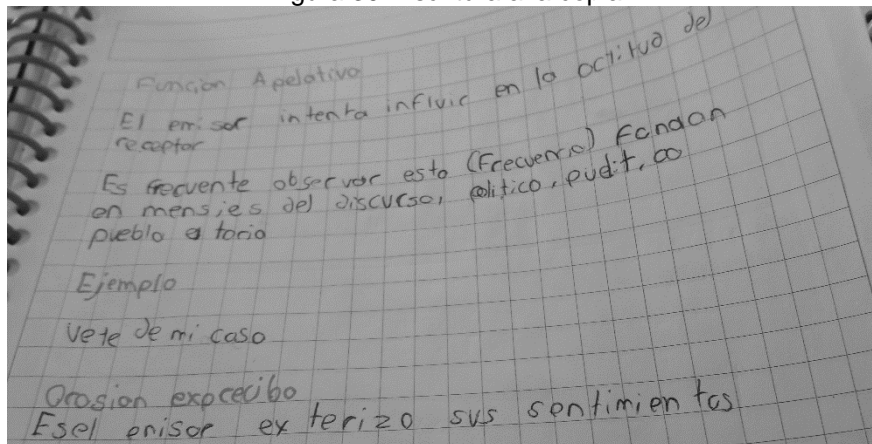 Funcion Apelativa
El emisor intenta influir en la actitud del
receptor
Es frecuente observar esta (Frecuencia) Fandan
en mensjes del discurso, politico, pudit, co
pueblo a torio
Ejemplo
Vete de mi casa
Orosion expcecibo
Esel enisor exterizo sus sentimientos